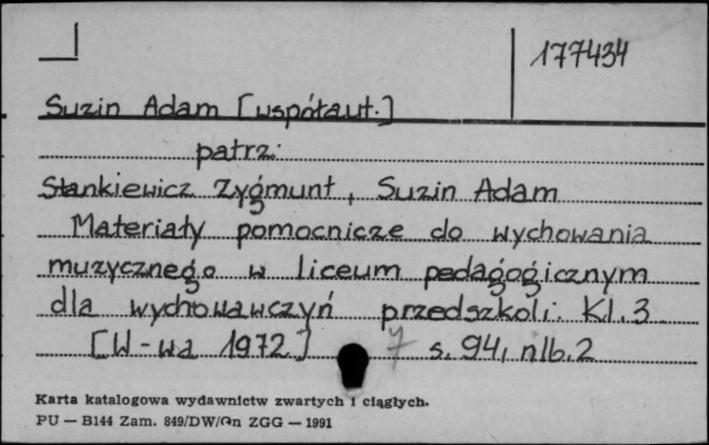 177434
Suzin Adam [współaut.]
patrz:
Stankiewicz Zygmunt, Suzin Adam
Materiały pomocnicze do wychowania
muzycznego w liceum pedagogicznym
dla wychowawczyń przedszkoli. Kl. 3
[W-wa 1972] 7 s. 94, nlb. 2
Karta katalogowa wydawnictw zwartych i ciągłych.
PU — B144 Zam. 849/DW/On ZGG — 1991